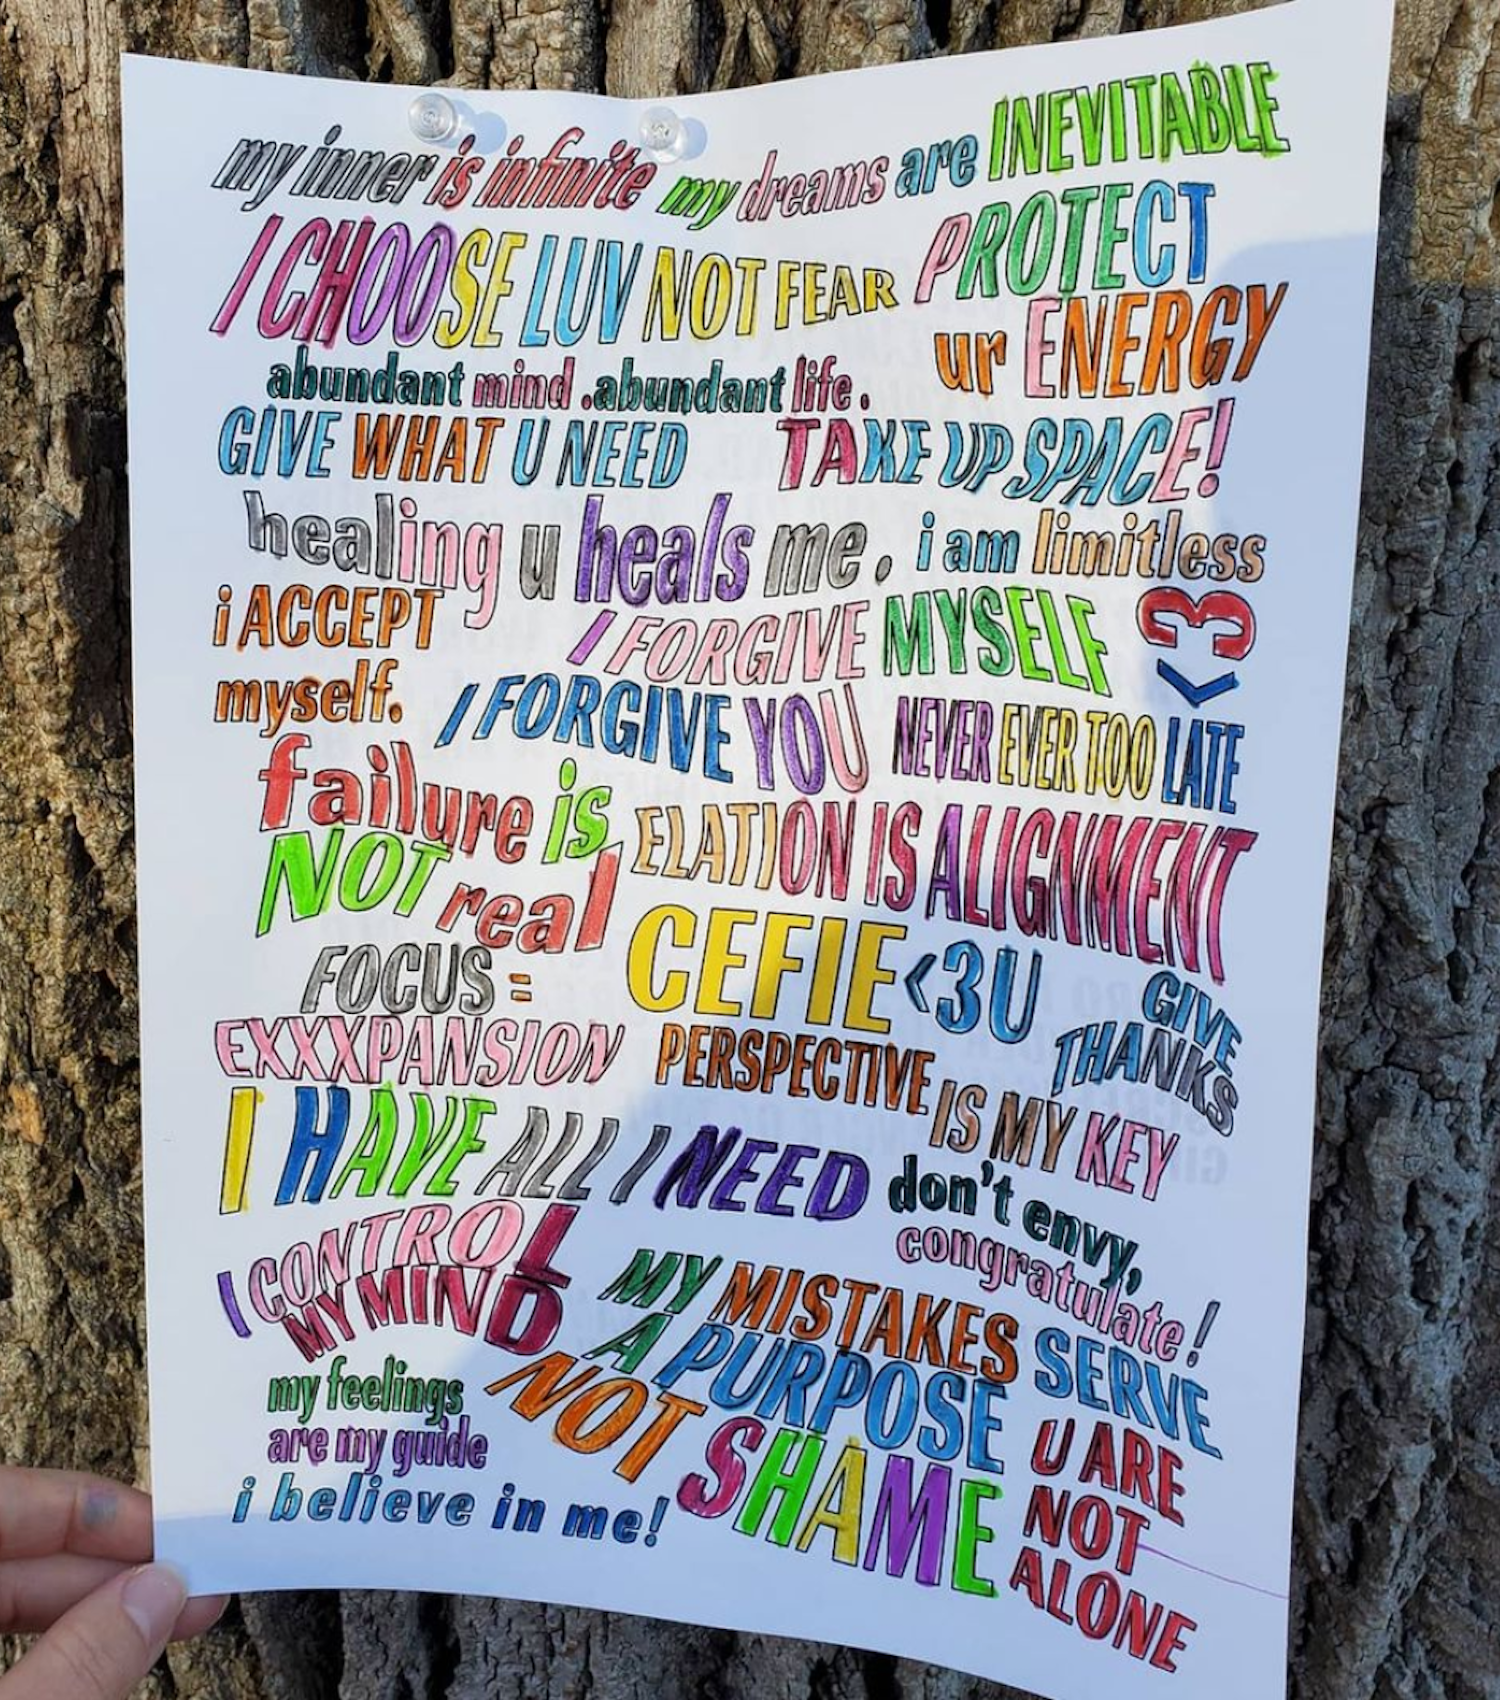 my inner is infinite my dreams are INEVITABLE
I CHOOSE LUV NOT FEAR
PROTECT
ur ENERGY
abundant mind .abundant life.
GIVE WHAT U NEED
TAKE UP SPACE!
healing u heals me.
i am limitless
<3
i ACCEPT
myself.
I FORGIVE MYSELF
I FORGIVE YOU
NEVER EVER TOO LATE
failure is
NOT real
ELATION IS ALIGNMENT
FOCUS =
EXXXPANSION
CEFIE <3 U
GIVE
THANKS
PERSPECTIVE IS MY KEY
I HAVE ALL I NEED
don't envy,
congratulate!
I CONTROL
MY MIND
MY MISTAKES SERVE
A PURPOSE
NOT SHAME
my feelings
are my guide
i believe in me!
U ARE
NOT
ALONE